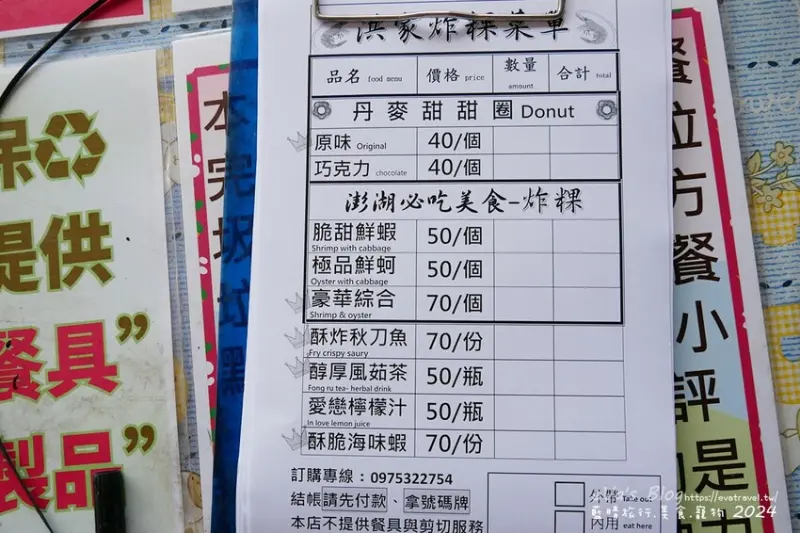 洪家炸粿菜單
品名 food menu 價格 price 數量 amount 合計 total
丹麥甜甜圈 Donut
原味 Original 40/個
巧克力 chocolate 40/個
澎湖必吃美食-炸粿
脆甜鮮蝦 50/個
Shrimp with cabbage
極品鮮蚵 50/個
Oyster with cabbage
豪華綜合 70/個
Shrimp & oyster
酥炸秋刀魚 70/份
Fry crispy saury
醇厚風茹茶 50/瓶
Fong ru tea- herbal drink
愛戀檸檬汁 50/瓶
In love lemon juice
酥脆海味蝦 70/份
訂購專線：0975322754
結帳請先付款、拿號碼牌
本店不提供餐具與剪切服務
外帶 Take out
內用 eat here
保
提供
餐具”
製品”
本
完
圾
垃
黑
餐
位
方
餐
小
評
是
Blog https://evatravel.tw/
藍晴旅行.美食.寵物 2024